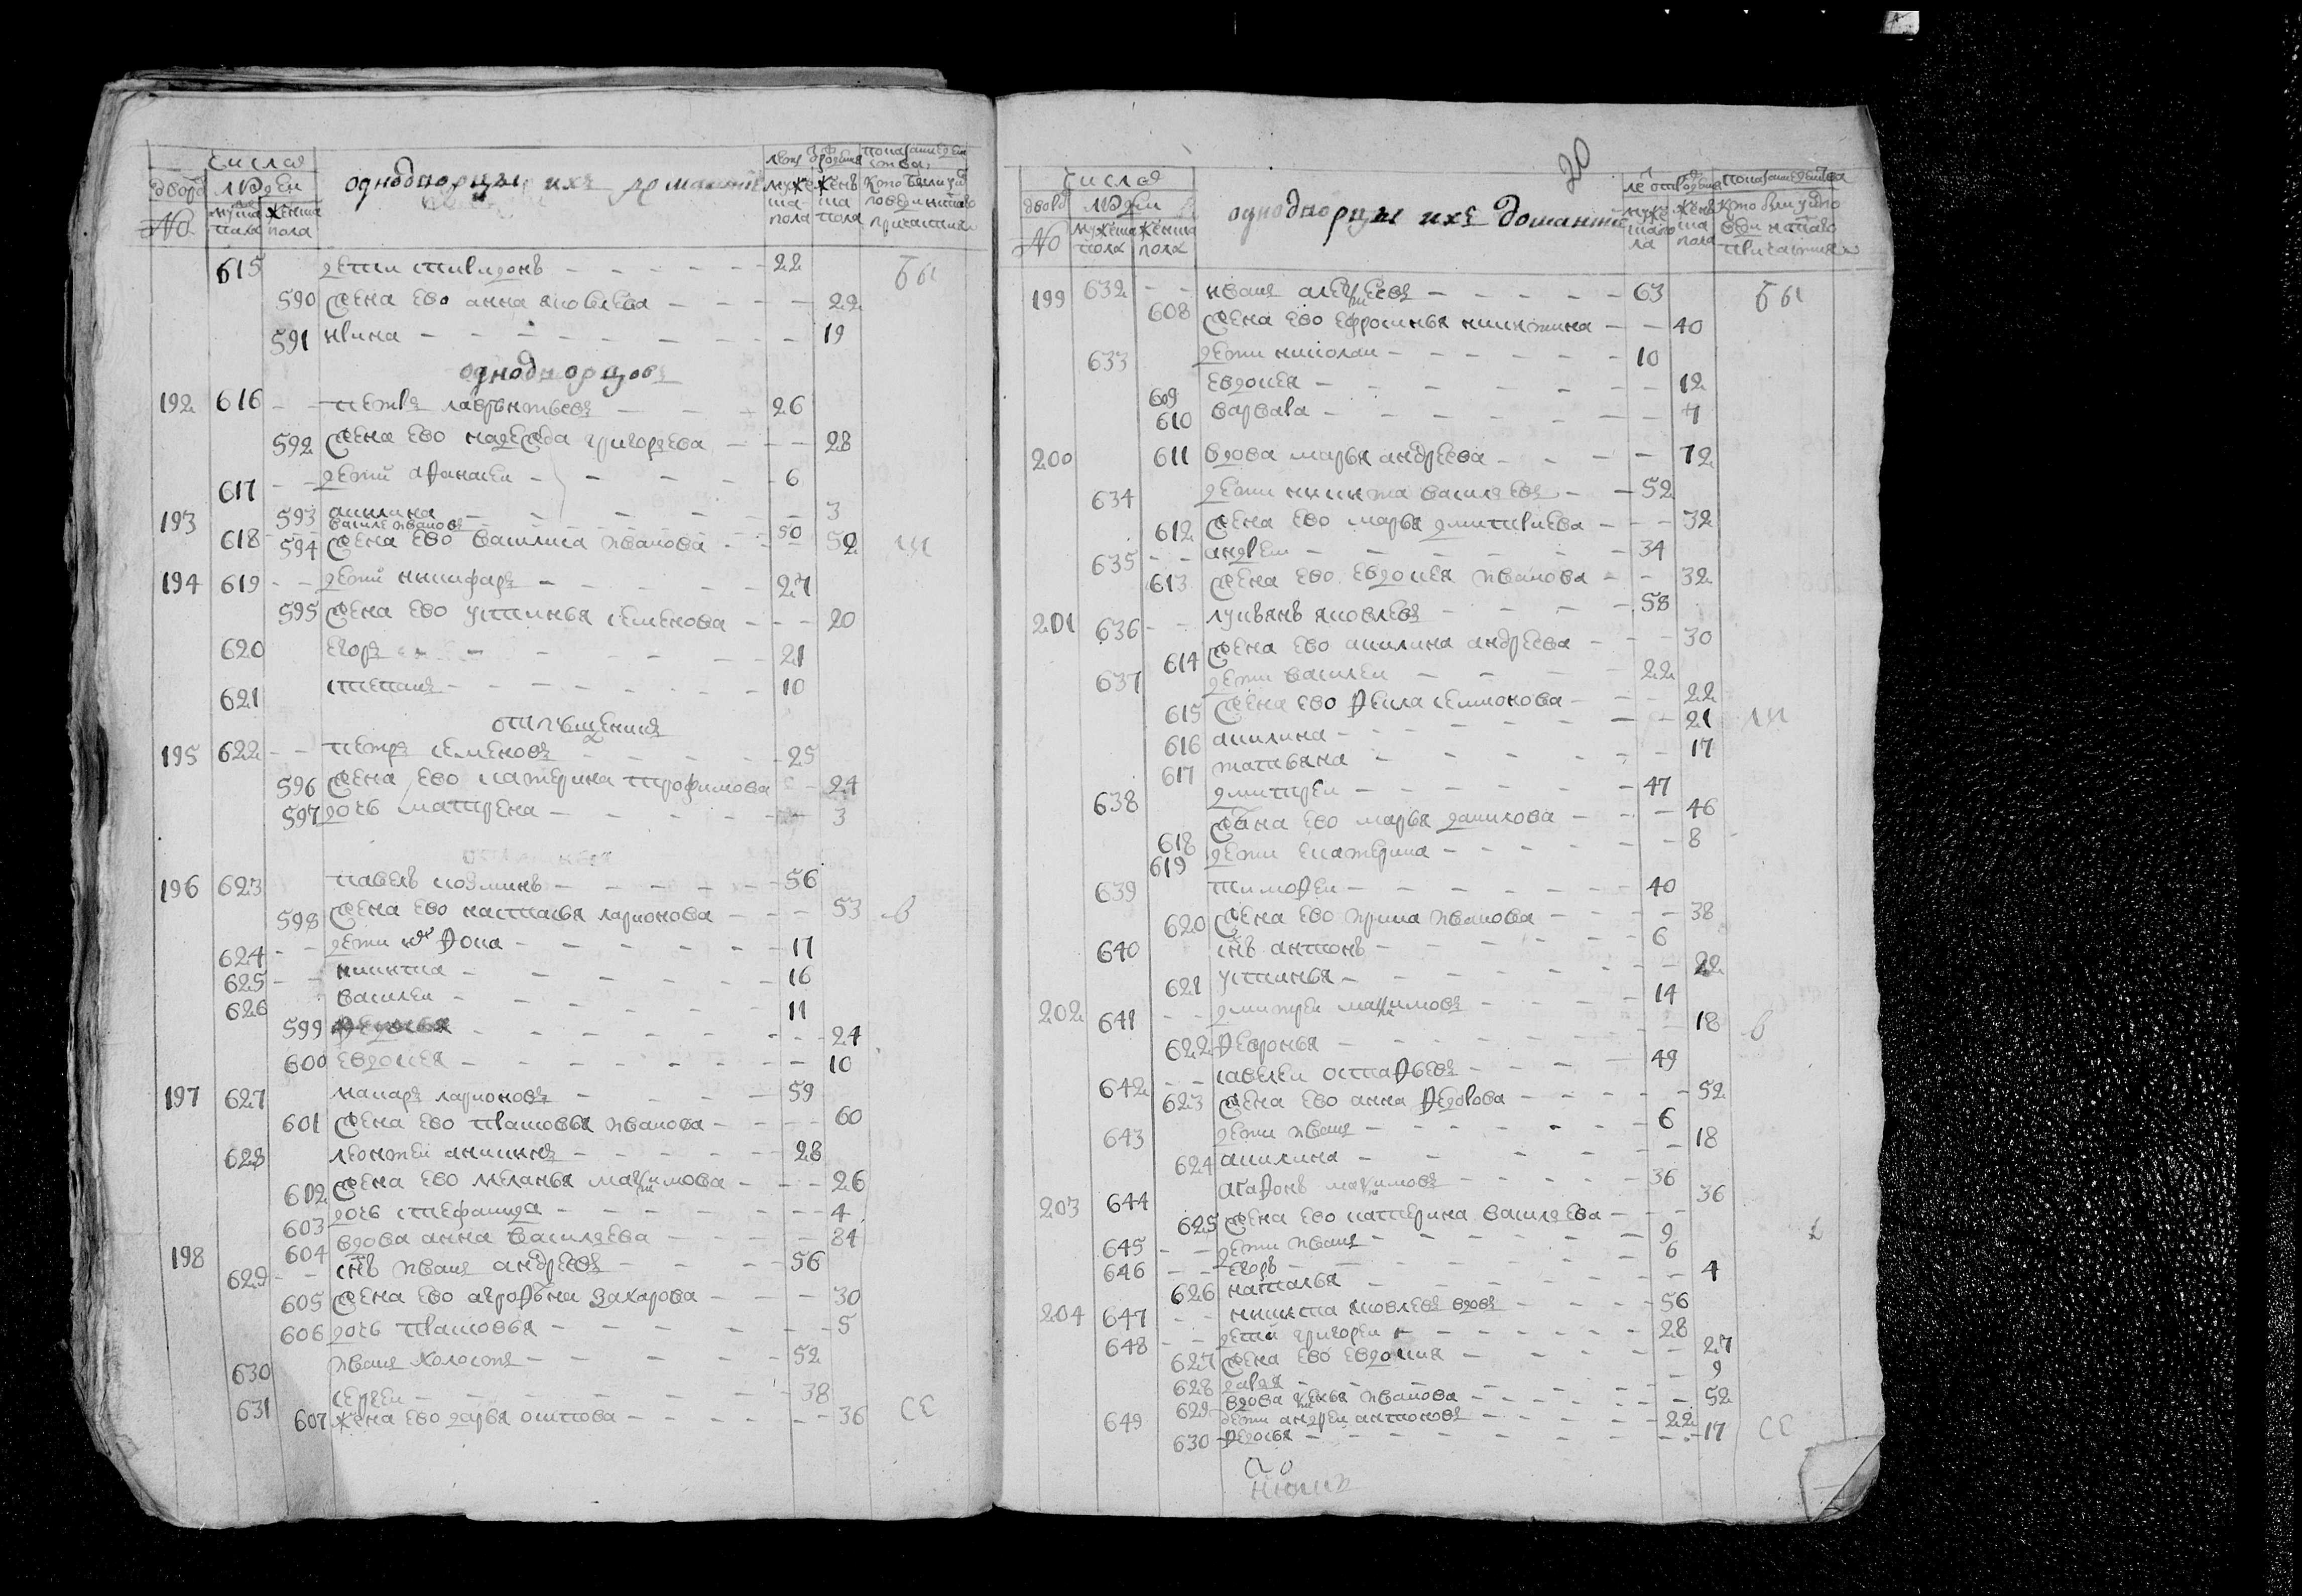 числа
дворовъ людеи
№ мужеска пола женска пола
однодворцы ихъ домашнiя
лета от рождения
мужеска пола женска пола
615 дети спиридонъ 22 бы
590 жена ево анна яковлева 22
591 ирина 19
однодворцовъ
192 616 петръ лаврентьевъ 26
592 жена ево надежда григорьева 28
617 дети афанасеи 6
593 акилина 3
193 618 василе ивановъ 50
594 жена ево василиса иванова 52
194 619 дети никифаръ 27
595 жена ево устинья семенова 20
620 егоръ 21
621 степанъ 10
195 622 петръ семеновъ 25
596 жена ево катерина трофимова 24
597 дочь матрена 3
196 623 павелъ козминъ 56
598 жена ево настасья ларионова 53
624 дети фока 17
625 никита 16
626 василеи 11
599 24
600 евдокея 10
197 627 макаръ ларионовъ 59
601 жена ево прасковья иванова 60
628 леонтеи аникинъ 28
602 жена ево меланья максимова 26
603 дочь стефанида 4
604 вдова анна василева 84
198 629 снъ иванъ андреевъ 56
605 жена ево аграфена захарова 30
606 дочь прасковья 5
630 иванъ холостъ 52
631 сергеи 38
607 жена ево дарья осипова 36 се
20
числа
дворовъ людеи
№ мужеска пола женска пола
однодворцы ихъ домашнiя
199 632 иванъ алексеевъ 63 бы
608 жена ево ефросинья никитина 40
633 дети николаи 10
609 евдокея 12
610 варвара 7
200 611 вдова марья андреева 72
634 дети никита василевъ 52
612 жена ево марья дмитриева 32
635 андреи 34
613 жена ево евдокея иванова 32
201 636 лукьянъ яковлевъ 58
614 жена ево акилина андреева 30
637 дети василеи 22
615 жена ево фекла семионова 22
616 акилина 21
617 татьяна 17
638 дмитреи 47
618 жена ево марья данилова 46
619 дети екатерина 8
639 тимофеи 40
620 жена ево ирина иванова 38
640 снъ антонъ 6
621 устинья 22
202 641 дмитреи максимовъ 14
622 февронья 18 в
642 савелеи остафьевъ 49
623 жена ево анна федорова 52
643 дети иванъ 6
624 акилина 18
203 644 агафонъ максимовъ 36
625 жена ево катерина василева 36
645 дети иванъ 9
646 егоръ 6
626 наталья 4
204 647 никита яковлевъ вдовъ 56
648 дети григореи 28
627 жена ево евдокия 27
628 дарья 9
629 вдова ксенья иванова 52
649 дети андреи антоновъ 22
630 федосья 17 се